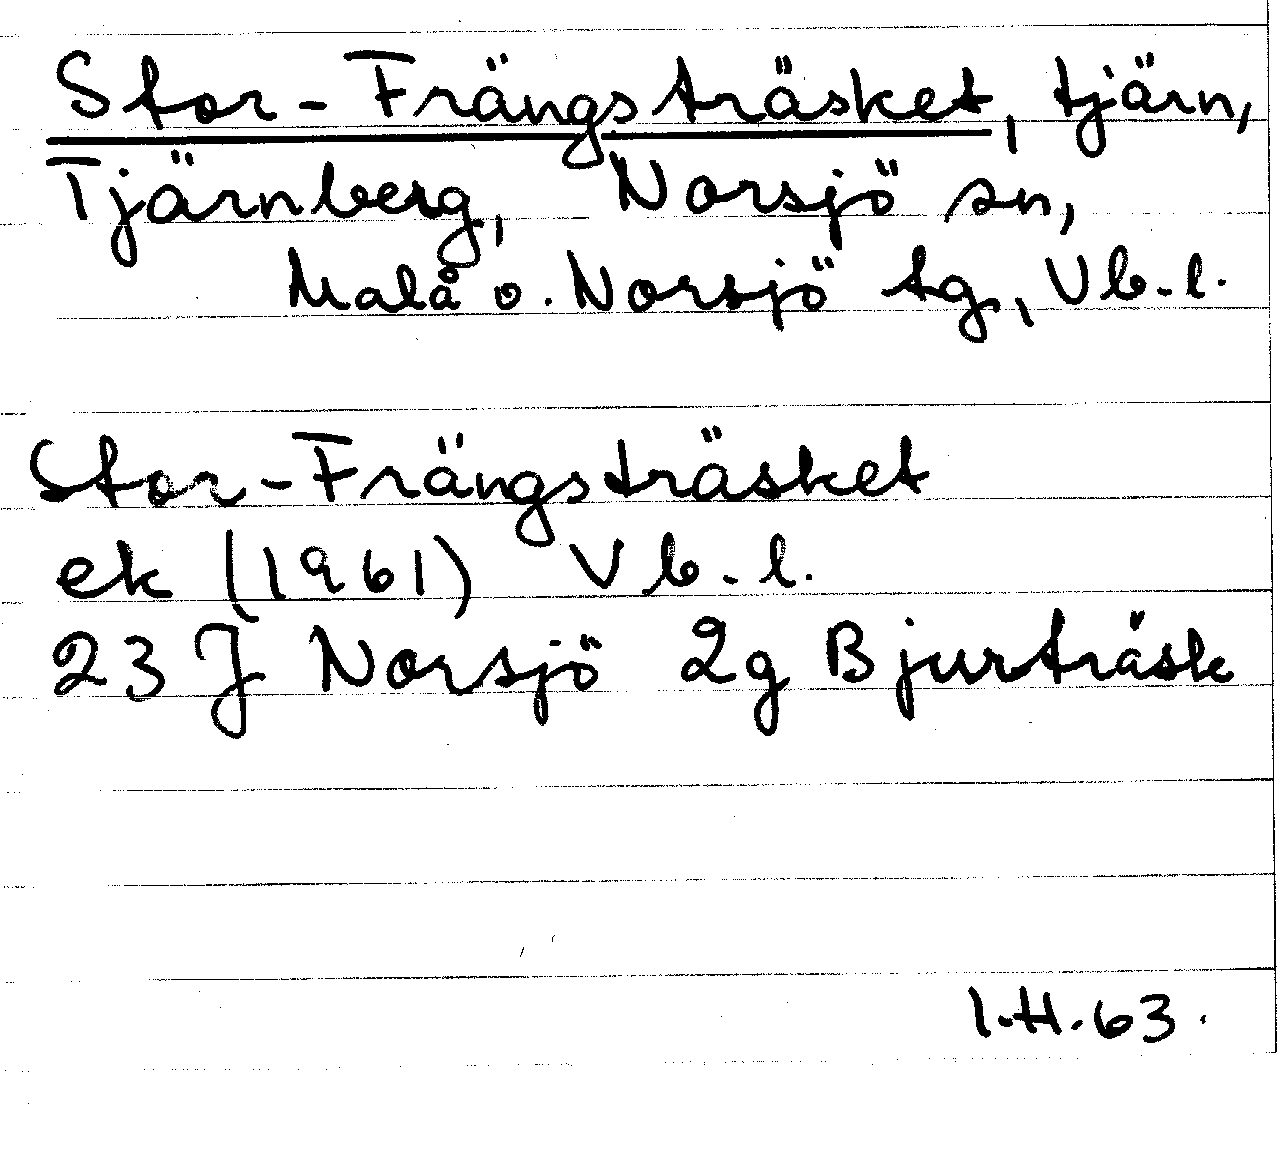 Stor-Frängsträsket, tjärn,
Tjärnberg, Norsjö sn,
Malå o. Norsjö tg, Vb.l.
Stor-Frängsträsket
ek (1961) Vb.l.
23 J Norsjö 2g Bjurträsk
I.H.63.